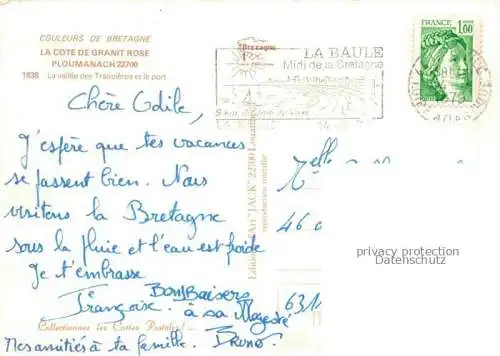 COULEURS DE BRETAGNE
LA COTE DE GRANIT ROSE
PLOUMANACH 22700
1838 La vallée des Traouiëros et le port
Bretagne
LA BAULE
Midi de la Bretagne
FRANCE
1,00
Chère Odile,
J'espère que tes vacances
se passent bien. Nous
visitons la Bretagne
sous la pluie et l'eau est froide
Je t'embrasse
Françoise
Bons Baisers
à sa Majesté
Bruno.
Mes amitiés à ta famille.
Collectionnez les Cartes Postales!
"JACK" 22700
reproduction interdite
Melle
46
631
privacy protection
Datenschutz